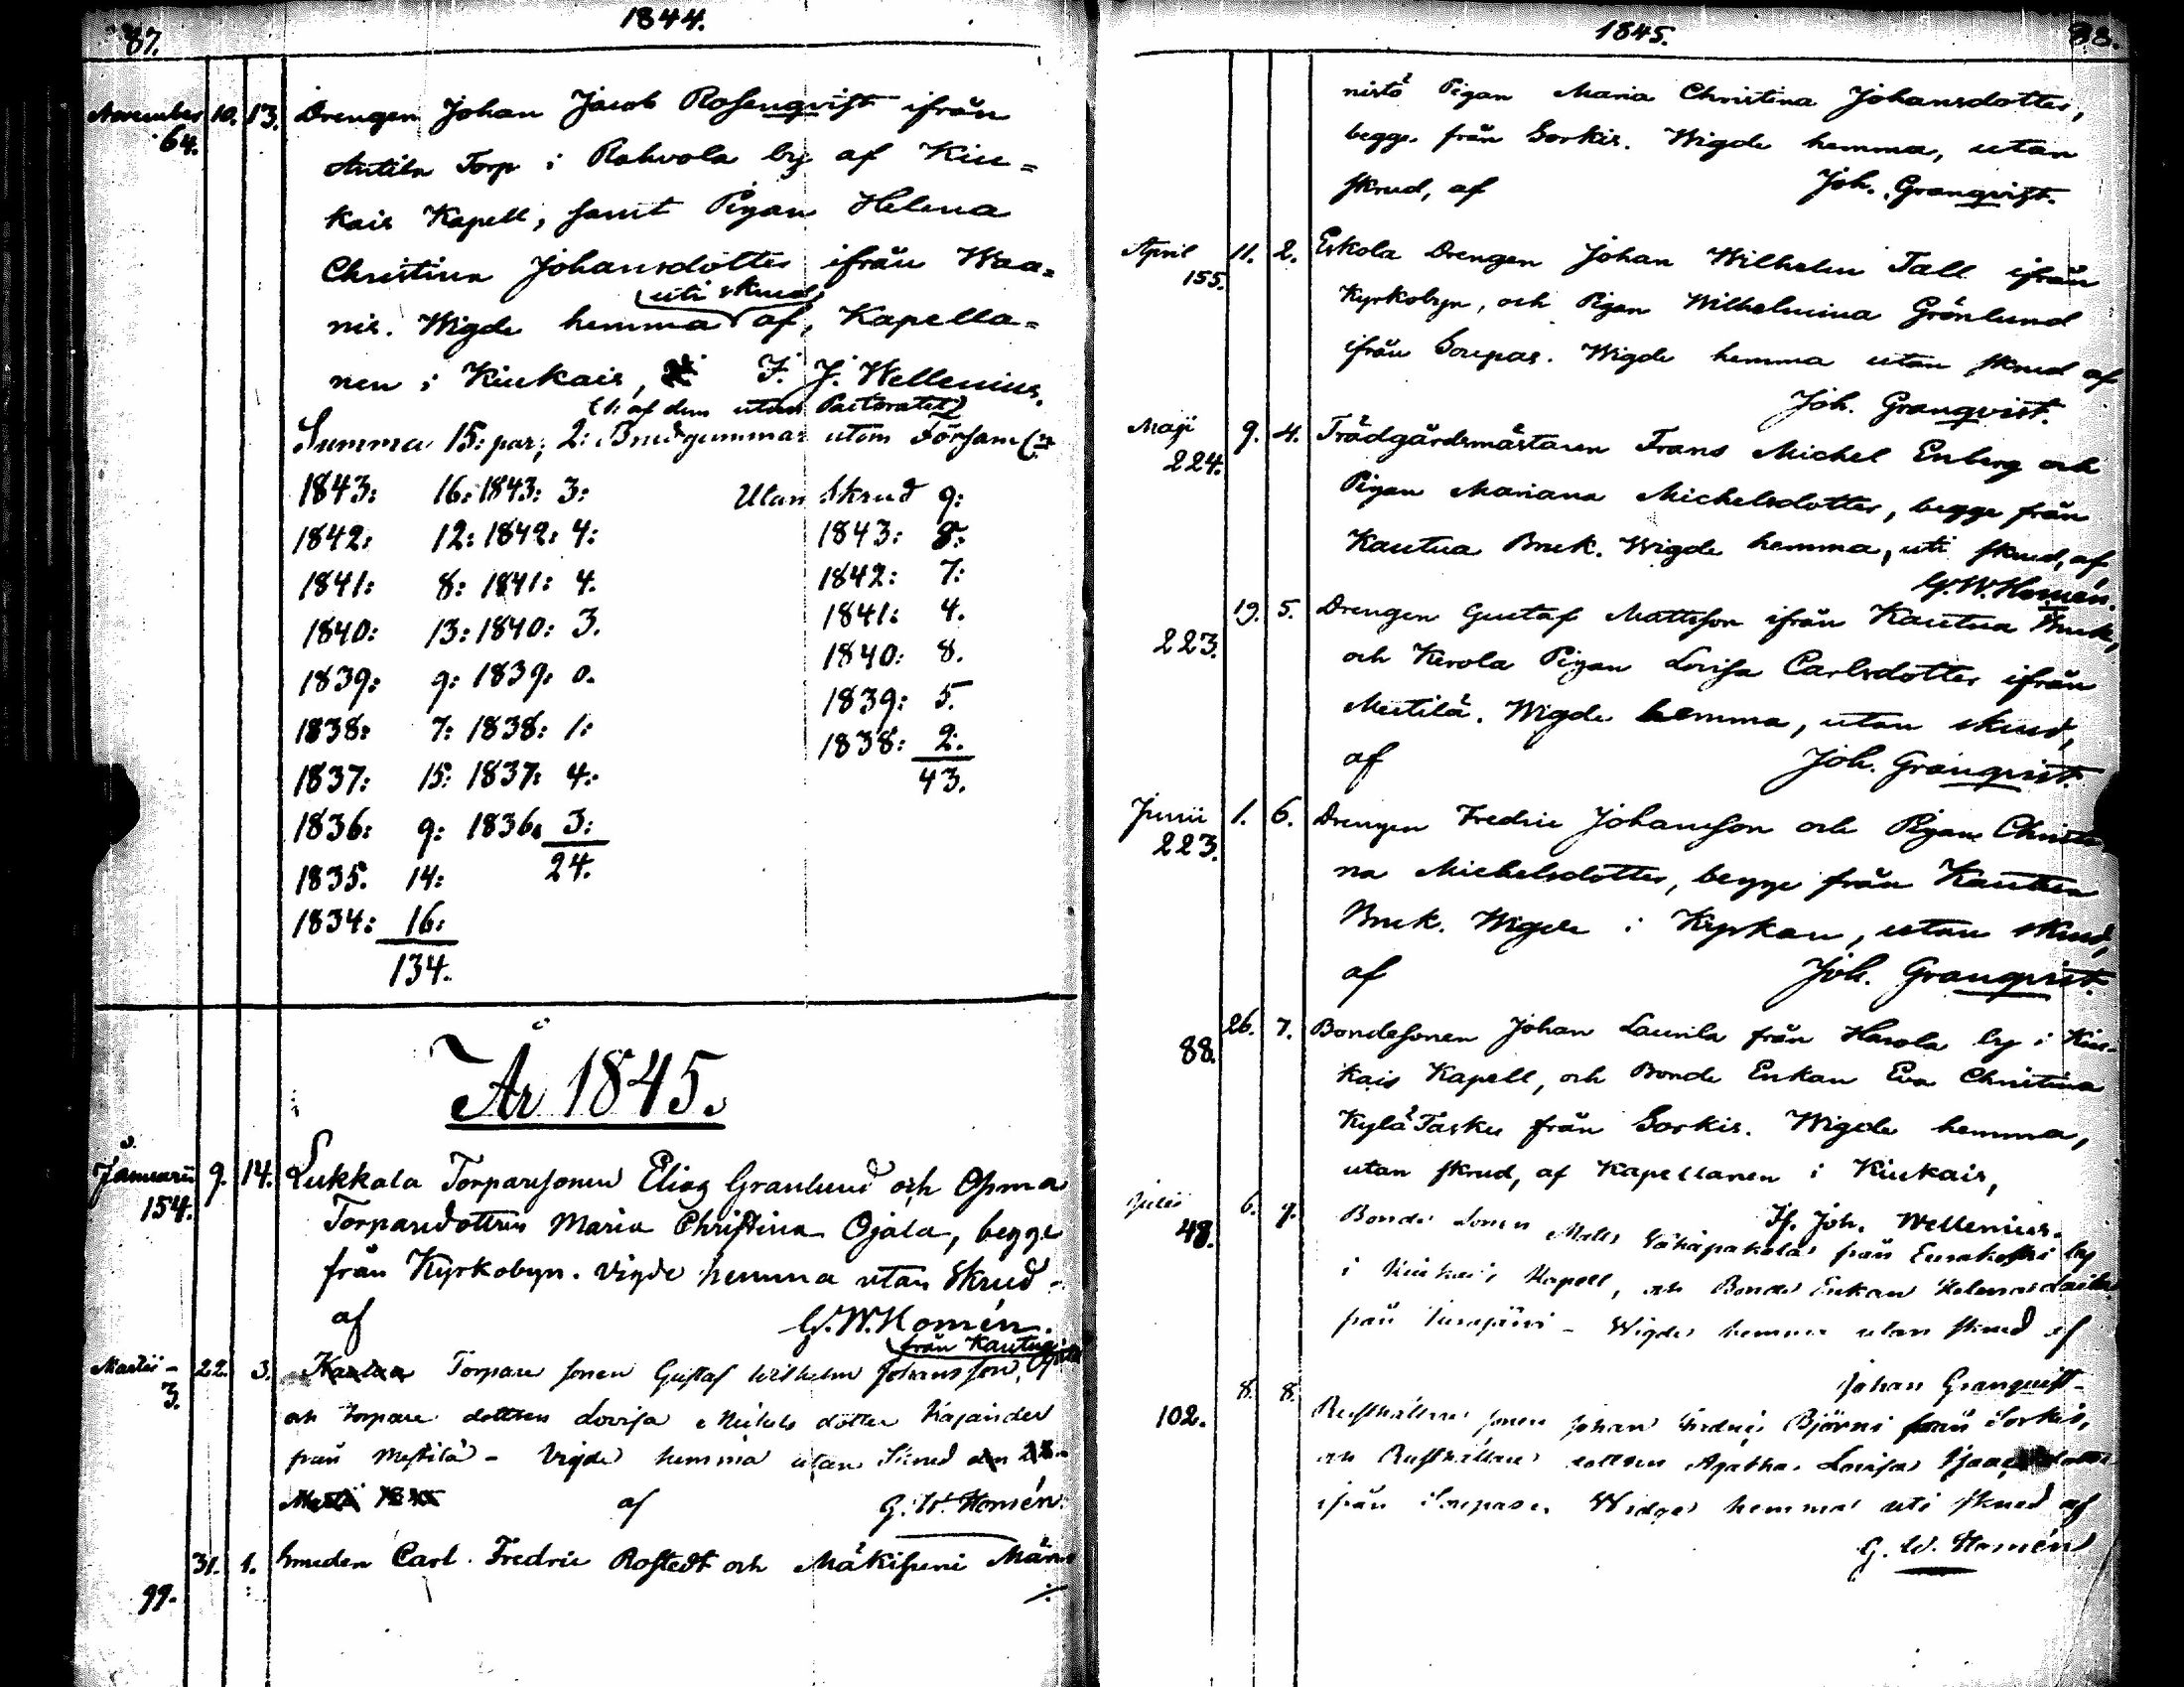 87.
1844.
November 10. 13. Drengen Johan Jacob Rosenqvist ifrån
64.
Antila Torp i Rahvola by af Kiu=
kais Kapell, samt Pigan Helena
Christina Johansdotter ifrån Waa=
uti skrud
nis. Wigde hemma af, Kapella=
nen i Kiukais, F. J. Wellenius.
(1: af dem utom Pastoratet)
Summa 15: par; 2: Brudgummar utom Församl:n
1843: 16: 1843: 3: Utan Skrud 9:
1842: 12: 1842: 4: 1843: 8:
1841: 8: 1841: 4. 1842: 7:
1840: 13: 1840: 3. 1841: 4.
1839: 9: 1839: 0. 1840: 8.
1838: 7: 1838: 1: 1839: 5.
1837: 15: 1837: 4: 1838: 2.
1836: 9: 1836: 3: 43.
1835. 14: 24.
1834: 16:
134.
År 1845.
Januarii 9. 14. Lukkala Torparesonen Elias Granlund och Osma
154.
Torparedottren Maria Christina Ojala, begge
från Kyrkobyn. Vigde hemma utan Skrud
af G. W. Homén.
från Kautua
Martii 22. 3. Kautua Torpare sonen Gustaf Wilhelm Johansson,
3.
och torpare dottren Lovisa Michels dotter Kajander
från Mestilä - Vigde hemma utan Skrud den
af G. W. Homén.
31. 1. Smeden Carl Fredric Rostedt och Mäkisuni Män
99.
1845.
88.
nistö Pigan Maria Christina Johansdotter,
begge från Sorkis. Wigde hemma, utan
skrud, af Joh. Granqvist.
April 11. 2. Eskola Drengen Johan Wilhelm Tall ifrån
155.
Kyrkobyn, och Pigan Wilhelmina Grönlund
ifrån Sorpas. Wigde hemma utan skrud af
Joh. Granqvist.
Maji 9. 4. Trädgårdsmästaren Frans Michel Enberg och
224.
Pigan Mariana Michelsdotter, begge från
Kautua Bruk. Wigde hemma, uti skrud, af
G. W. Homén.
19. 5. Drengen Gustaf Mattsson ifrån Kautua Bruk,
223.
och Kerola Pigan Lovisa Carlsdotter ifrån
Mestilä. Wigde hemma, utan skrud,
af Joh. Granqvist.
Junii 1. 6. Drengen Fredric Johansson och Pigan Christi
223.
na Michelsdotter, begge från Kautua
Bruk. Wigde i Kyrkan, utan skrud,
af Joh. Granqvist.
26. 7. Bondesonen Johan Laurila från Harola by i Kiu-
88.
kais Kapell, och Bonde Enkan Eva Christina
Kylä Tasku från Sorkis. Wigde hemma,
utan skrud, af Kapellanen i Kiukais,
Fr. Joh. Wellenius.
Julii 6. 9. Bonde Sonen Matts Vähäpakola från Eurakoski by
48.
i Kiukais Kapell, och Bonde Enkan Helena
från Eurajärvi - Wigde hemma utan skrud af
Johan Granquist
8. 8. Rusthållare sonen Johan Fredric Björni från Sorkis,
102.
och Rusthållare dottren Agatha Lovisa
ifrån Sorpas. Widge hemma uti skrud af
G. W. Homén